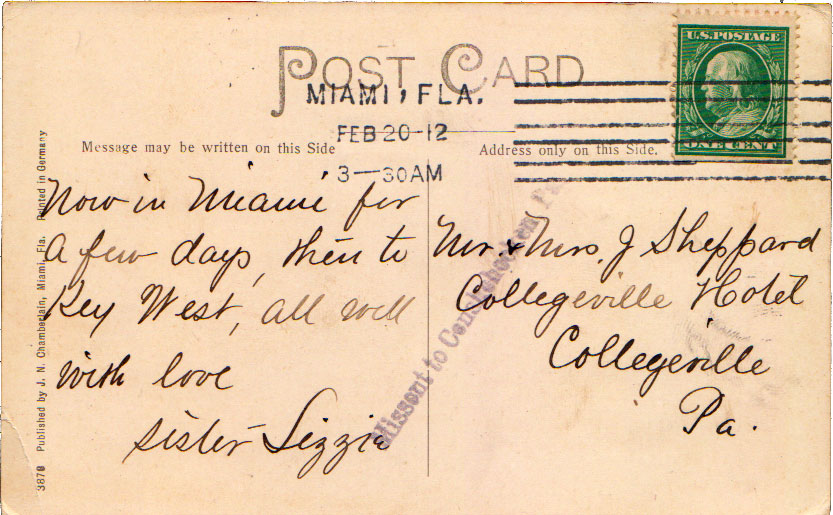 POST CARD
MIAMI, FLA.
FEB 20-12
3-30AM
U.S. POSTAGE
ONE CENT
Message may be written on this Side
Address only on this Side.
Now in Miami for
a few days, then to
Key West, all well
with love
sister Lizzie
Mr. & Mrs. J Sheppard
Collegeville Hotel
Collegeville
Pa.
Missent to Conshohocken, Pa.
3879 Published by J. N. Chamberlain, Miami, Fla. Printed in Germany